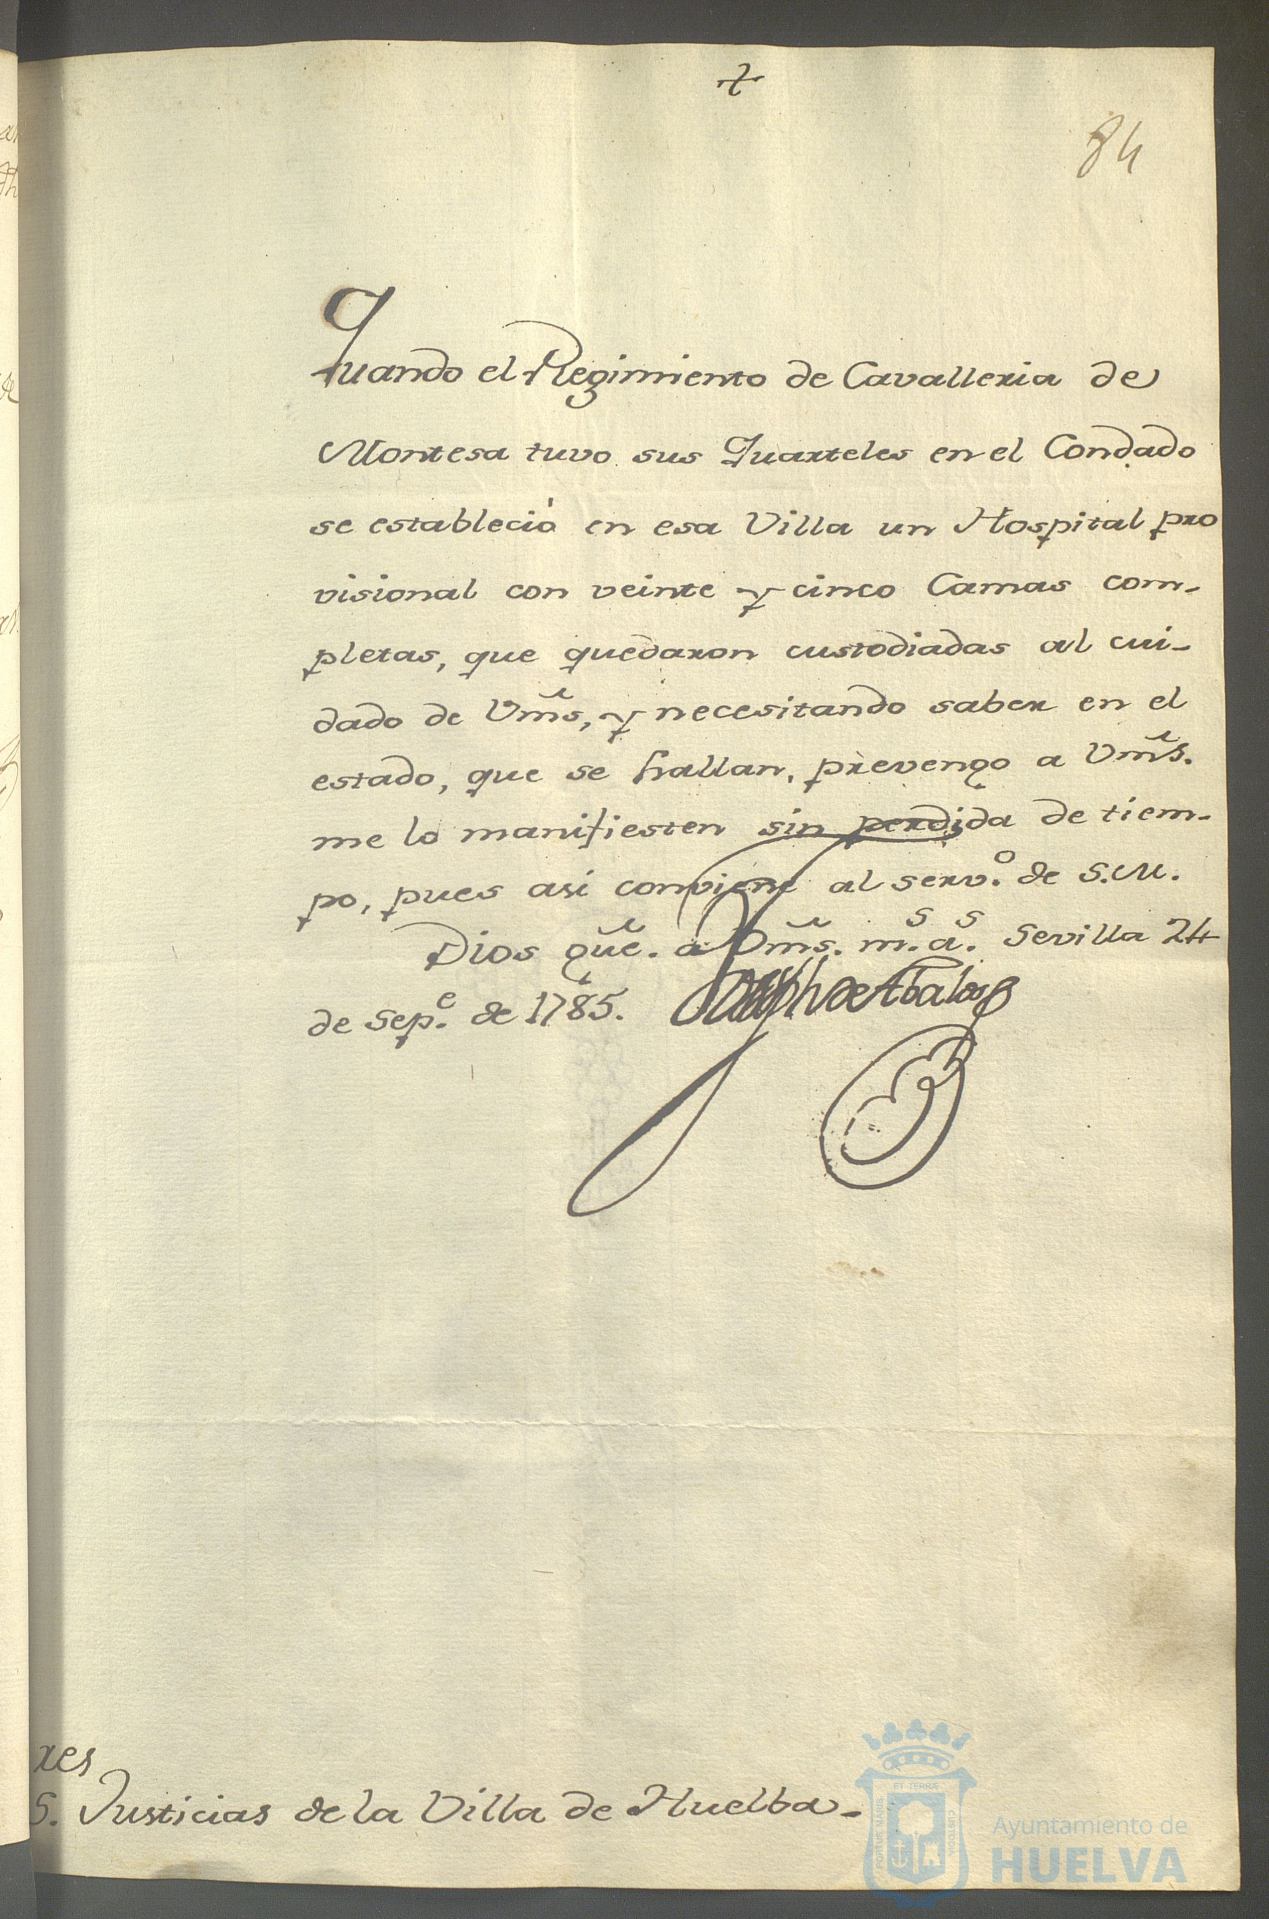 84
Quando el Regimiento de Cavalleria de
Montesa tuvo sus Quarteles en el Condado
se estableciò en esa Villa un Hospital pro
visional con veinte y cinco Camas com-
pletas, que quedaron custodiadas al cui-
dado de Vm̃s, y necesitando saber en el
estado, que se hallan, prevengo a Vm̃s.
me lo manifiesten sin perdida de tiem-
po, pues asi conviene al serv.º de S.M.
Dios gũe. à Vm̃s. m.ˢ a.ˢ Sevilla 24
de Sep.ᵉ de 1785. Joseph de Abalos
res
S. Justicias de la Villa de Huelba.
PORTUS MARIS ET TERRÆ CUSTODIA
Ayuntamiento de
HUELVA